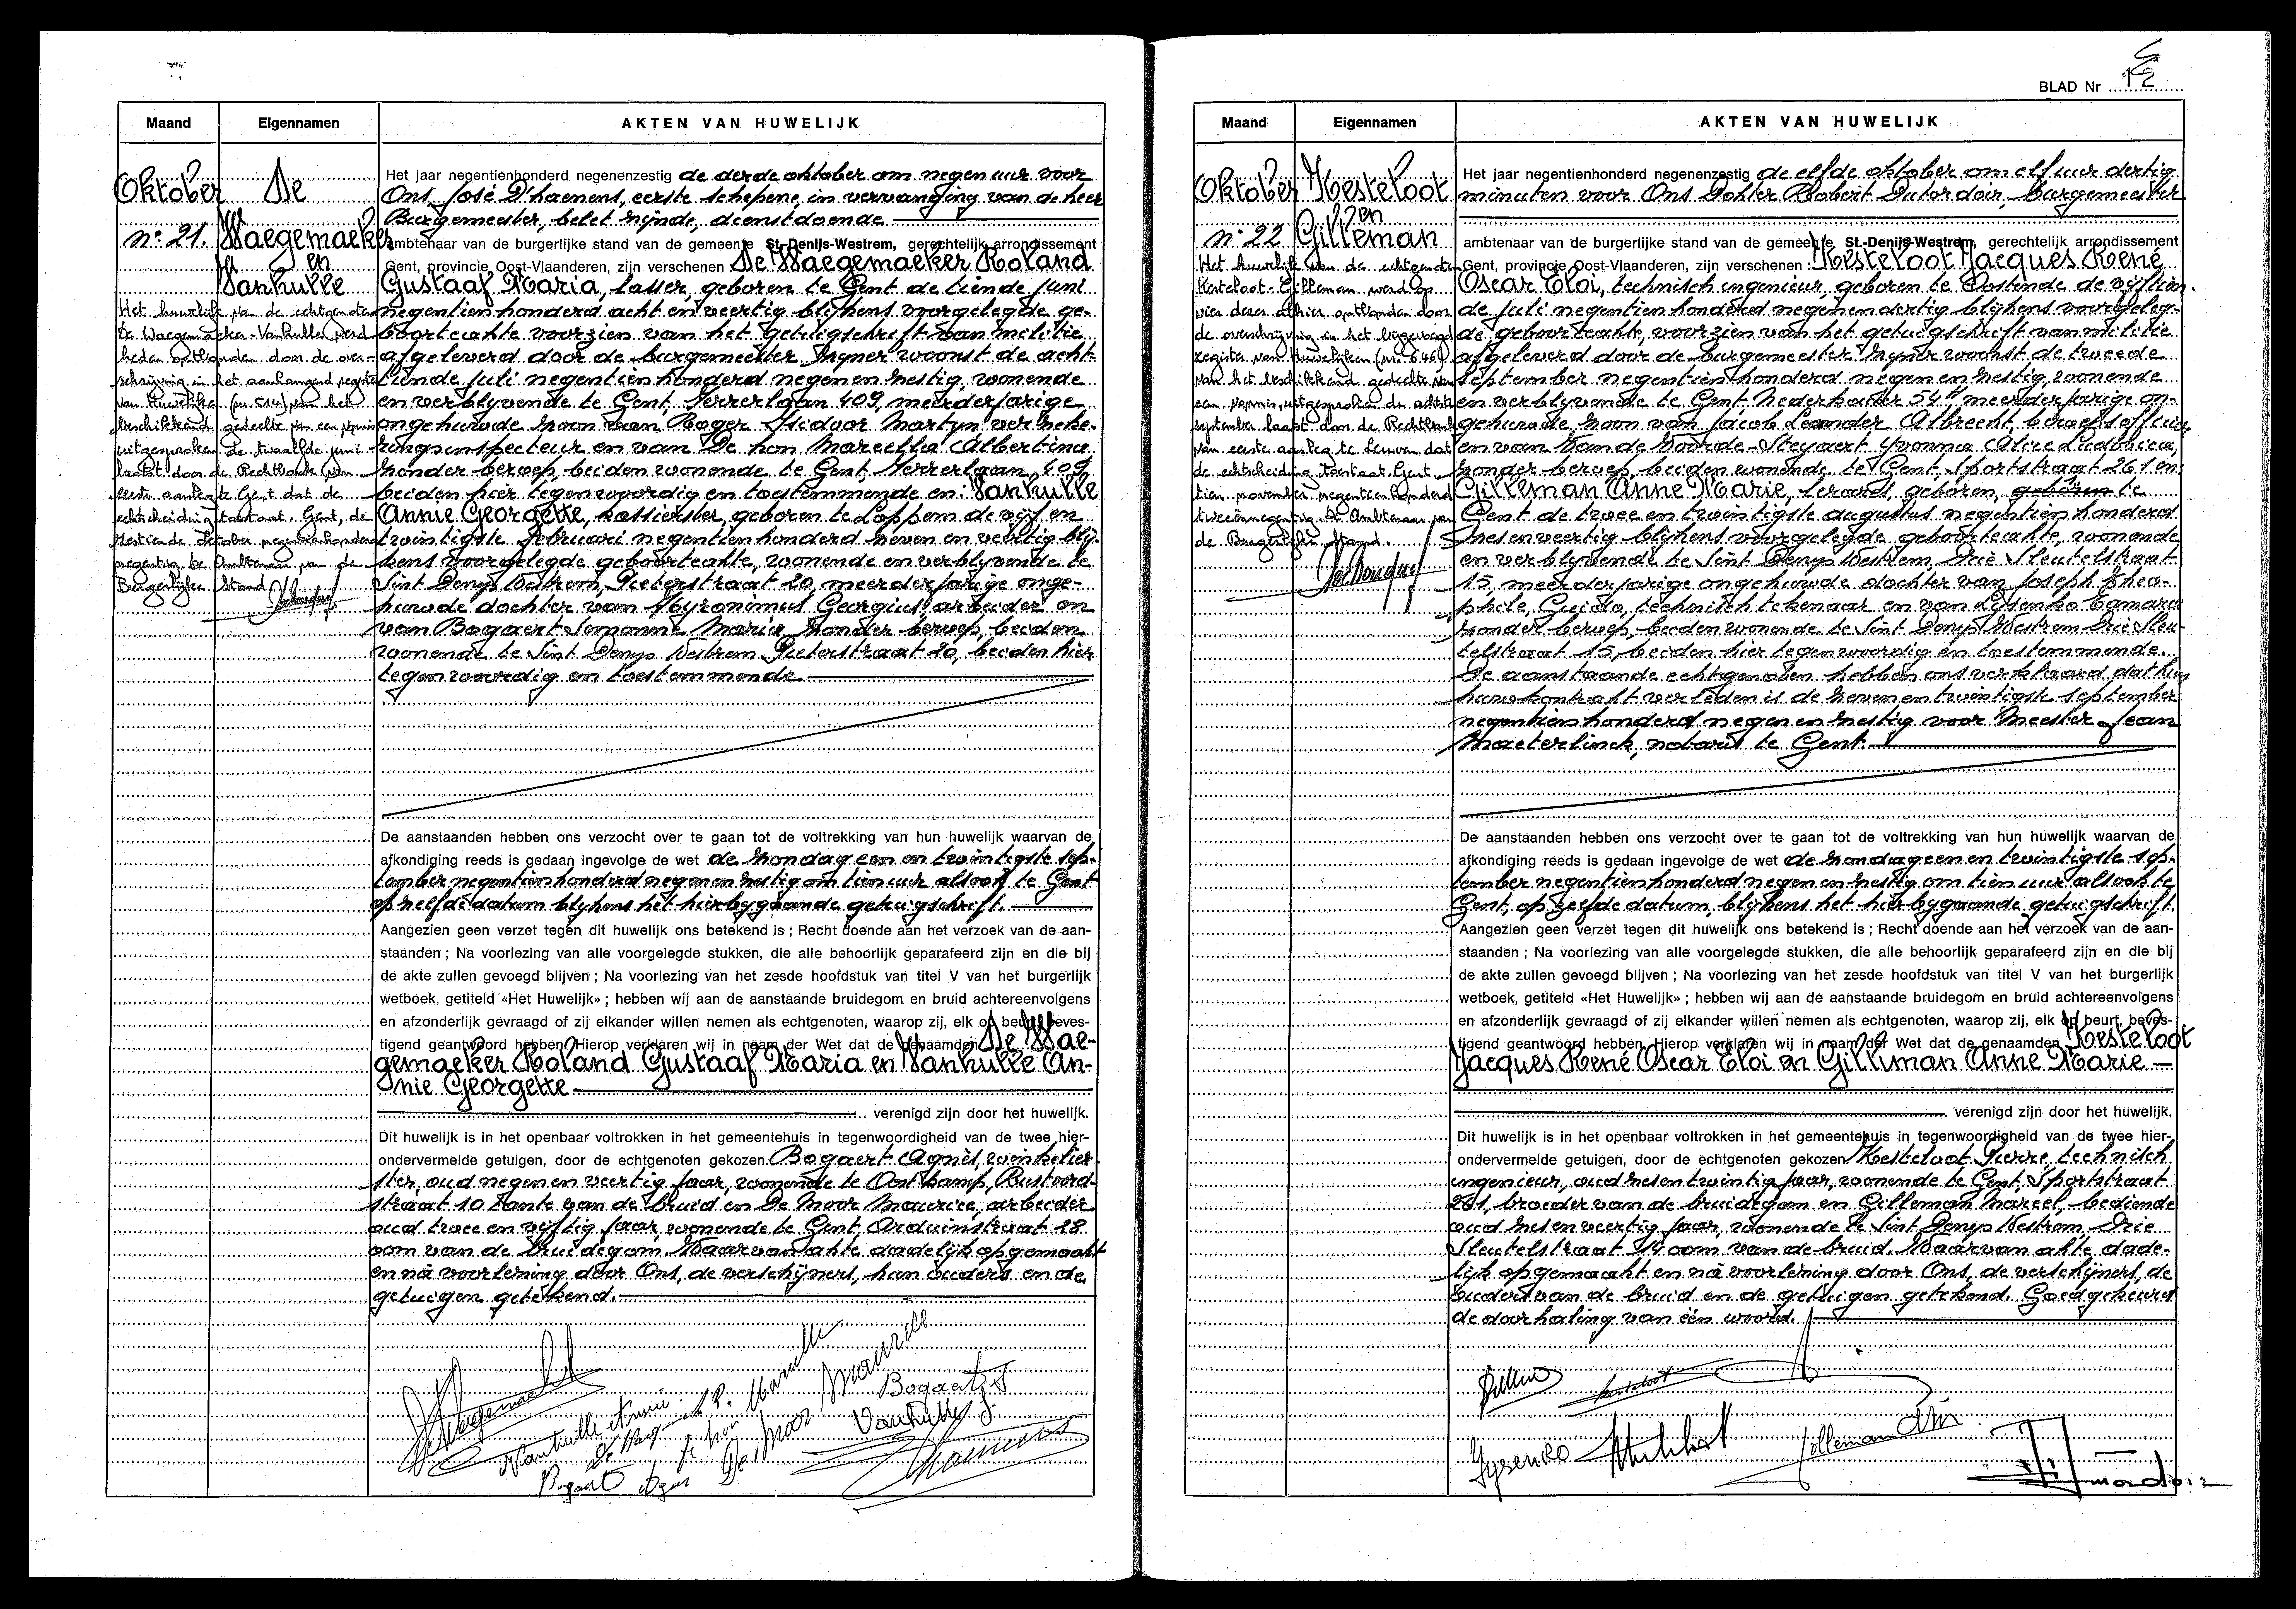 Maand Eigennamen AKTEN VAN HUWELIJK
Oktober
n° 21.
De
Waegemaeker
en
Vanhulle
Het huwelijk van de echtgenoten
De Waegemaeker-Vanhulle werd
heden ontbonden door de over-
schrijving in het aanhangend register
van Huwelijken (nr. ) van het
beschikkend gedeelte van een vonnis
uitgesproken de twaalfde juni
laatst door de Rechtbank van
eerste aanleg te Gent dat de
echtscheiding toestaat. Gent, de
zestiende oktober negentienhonderd
negentig. De Ambtenaar van de
Burgerlijke Stand
Het jaar negentienhonderd negenenzestig de derde oktober om negen uur voor
Ons, José D'haenens, eerste schepene, in vervanging van de heer
Burgemeester, belet zijnde, dienstdoende
ambtenaar van de burgerlijke stand van de gemeente St.-Denijs-Westrem, gerechtelijk arrondissement
Gent, provincie Oost-Vlaanderen, zijn verschenen De Waegemaeker Roland
Gustaaf Maria, lasser, geboren te Gent de tiende juni
negentienhonderd acht en veertig blijkens voorgelegde ge-
boorteakte voorzien van het getuigschrift van militie
afgeleverd door de burgemeester zijner woonst de acht-
tiende juli negentienhonderd negen en zestig, wonende
en verblyvende te Gent, Ferrerlaan 409, meerderjarige
ongehuwde zoon van Roger Isidoor Martyn, verzeke-
ringsinspecteur en van De hon Marcella Albertina
zonder beroep, beiden wonende te Gent, Ferrerlaan 409
beiden hier tegenwoordig en toestemmende en: Vanhulle
Annie Georgette, kassierster, geboren te Loppem de vijf en
twintigste februari negentienhonderd zeven en veertig blij-
kens voorgelegde geboorteakte, wonende en verblyvende te
Sint Denys Westrem, Pieterstraat 20, meerderjarige onge-
huwde dochter van Hyronimus Georgius, arbeider en
van Bogaert Simonne Maria, zonder beroep, beiden
wonende te Sint Denys Westrem Pieterstraat 20, beiden hier
tegenwoordig en toestemmende
De aanstaanden hebben ons verzocht over te gaan tot de voltrekking van hun huwelijk waarvan de
afkondiging reeds is gedaan ingevolge de wet de zondag een en twintigste sep-
tember negentienhonderd negen en zestig om tien uur alsook te Gent
op zelfde datum blijkens het hierbygaande getuigschrift.
Aangezien geen verzet tegen dit huwelijk ons betekend is ; Recht doende aan het verzoek van de aan-
staanden ; Na voorlezing van alle voorgelegde stukken, die alle behoorlijk geparafeerd zijn en die bij
de akte zullen gevoegd blijven ; Na voorlezing van het zesde hoofdstuk van titel V van het burgerlijk
wetboek, getiteld «Het Huwelijk» ; hebben wij aan de aanstaande bruidegom en bruid achtereenvolgens
en afzonderlijk gevraagd of zij elkander willen nemen als echtgenoten, waarop zij, elk op beurt, beves-
tigend geantwoord hebben. Hierop verklaren wij in naam der Wet dat de genaamden De Wae-
gemaeker Roland Gustaaf Maria en Vanhulle An-
nie Georgette
verenigd zijn door het huwelijk.
Dit huwelijk is in het openbaar voltrokken in het gemeentehuis in tegenwoordigheid van de twee hier-
ondervermelde getuigen, door de echtgenoten gekozen Bogaert Agnès, winkelier-
ster, oud negen en veertig jaar, wonende te Oostkamp, Rustoord-
straat 10 tante van de bruid en De Moor Maurice, arbeider
oud twee en vijftig jaar, wonende te Gent, Arduinstraat 28
oom van de bruidegom. Waarvan akte dadelijk opgemaakt
en nà voorlezing door Ons, de verschijners, hun ouders en de
getuigen getekend.
De Waegemaeker
Vanhulle Annie
De hon Marcella
De Moor Maurice
Bogaert S
Vanhulle G.
Bogaert Agnes
Dhaenens
BLAD Nr 12
Maand Eigennamen AKTEN VAN HUWELIJK
Oktober
n° 22
Kesteloot
en
Gilleman
Het huwelijk van de echtgenoten
Kesteloot-Gilleman werd op
vier dezer alhier ontbonden door
de overschrijving in het bijgevoegd
register van Huwelijken (nr. 846)
van het beschikkend gedeelte van
een vonnis, uitgesproken de achtste
september laatst door de Rechtbank
van eerste aanleg te Leuven dat
de echtscheiding toestaat. Gent,
tien november negentienhonderd
tweeënnegentig. De Ambtenaar van
de Burgerlijke Stand.
Het jaar negentienhonderd negenenzestig de elfde oktober om elf uur dertig
minuten voor Ons Dokter Robert Dutordoir, burgemeester
ambtenaar van de burgerlijke stand van de gemeente St.-Denijs-Westrem, gerechtelijk arrondissement
Gent, provincie Oost-Vlaanderen, zijn verschenen : Kesteloot Jacques René
Oscar Eloi, technisch ingenieur, geboren te Oostende de vyftien-
de juli negentienhonderd negenendertig blijkens voorgeleg-
de geboorteakte, voorzien van het getuigschrift van militie
afgeleverd door de burgemeester zijner woonst de tweede
september negentienhonderd negen en zestig, wonende
en verblyvende te Gent, Nederkouter 54, meerderjarige on-
gehuwde zoon van Jacob Leander Albrecht, beroepsofficier
en van Van de Voorde-Steyaert Yvonna Alice Ludovica,
zonder beroep, beiden wonende te Gent, Sportstraat 261 en
Gilleman Anne Marie, lerares, geboren, geboren te
Gent de twee en twintigste augustus negentienhonderd
zes en veertig blijkens voorgelegde geboorteakte, wonende
en verblyvende te Sint Denys Westrem, Drie Sleutelstraat
15, meerderjarige ongehuwde dochter van Joseph Theo-
phile, Guido, technisch tekenaar en van Lysenko Tamara
zonder beroep, beiden wonende te Sint Denys Westrem Drie Sleu-
telstraat 15, beiden hier tegenwoordig en toestemmende.
De aanstaande echtgenoten hebben ons verklaard dat hun
huwkontrakt verleden is de zeven en twintigste september
negentienhonderd negen en zestig voor Meester Jean
Maeterlinck, notaris te Gent.
De aanstaanden hebben ons verzocht over te gaan tot de voltrekking van hun huwelijk waarvan de
afkondiging reeds is gedaan ingevolge de wet de zondag een en twintigste sep-
tember negentienhonderd negen en zestig om tien uur alsook te
Gent, op zelfde datum, blijkens het hierbygaande getuigschrift.
Aangezien geen verzet tegen dit huwelijk ons betekend is ; Recht doende aan het verzoek van de aan-
staanden ; Na voorlezing van alle voorgelegde stukken, die alle behoorlijk geparafeerd zijn en die bij
de akte zullen gevoegd blijven ; Na voorlezing van het zesde hoofdstuk van titel V van het burgerlijk
wetboek, getiteld «Het Huwelijk» ; hebben wij aan de aanstaande bruidegom en bruid achtereenvolgens
en afzonderlijk gevraagd of zij elkander willen nemen als echtgenoten, waarop zij, elk op beurt, beves-
tigend geantwoord hebben. Hierop verklaren wij in naam der Wet dat de genaamden Kesteloot
Jacques René Oscar Eloi en Gilleman Anne Marie
verenigd zijn door het huwelijk.
Dit huwelijk is in het openbaar voltrokken in het gemeentehuis in tegenwoordigheid van de twee hier-
ondervermelde getuigen, door de echtgenoten gekozen Kesteloot Pierre, technisch
ingenieur, oud zes en twintig jaar, wonende te Gent, Sportstraat
261, broeder van de bruidegom en Gilleman Marcel, bediende
oud zes en veertig jaar, wonende te Sint Denys Westrem, Drie
Sleutelstraat 14 oom van de bruid. Waarvan akte, dade-
lijk opgemaakt en nà voorlezing door Ons, de verschijners, de
ouders van de bruid en de getuigen getekend. Goedgekeurd
de doorhaling van één woord.
Kesteloot
Lysenko
Gilleman